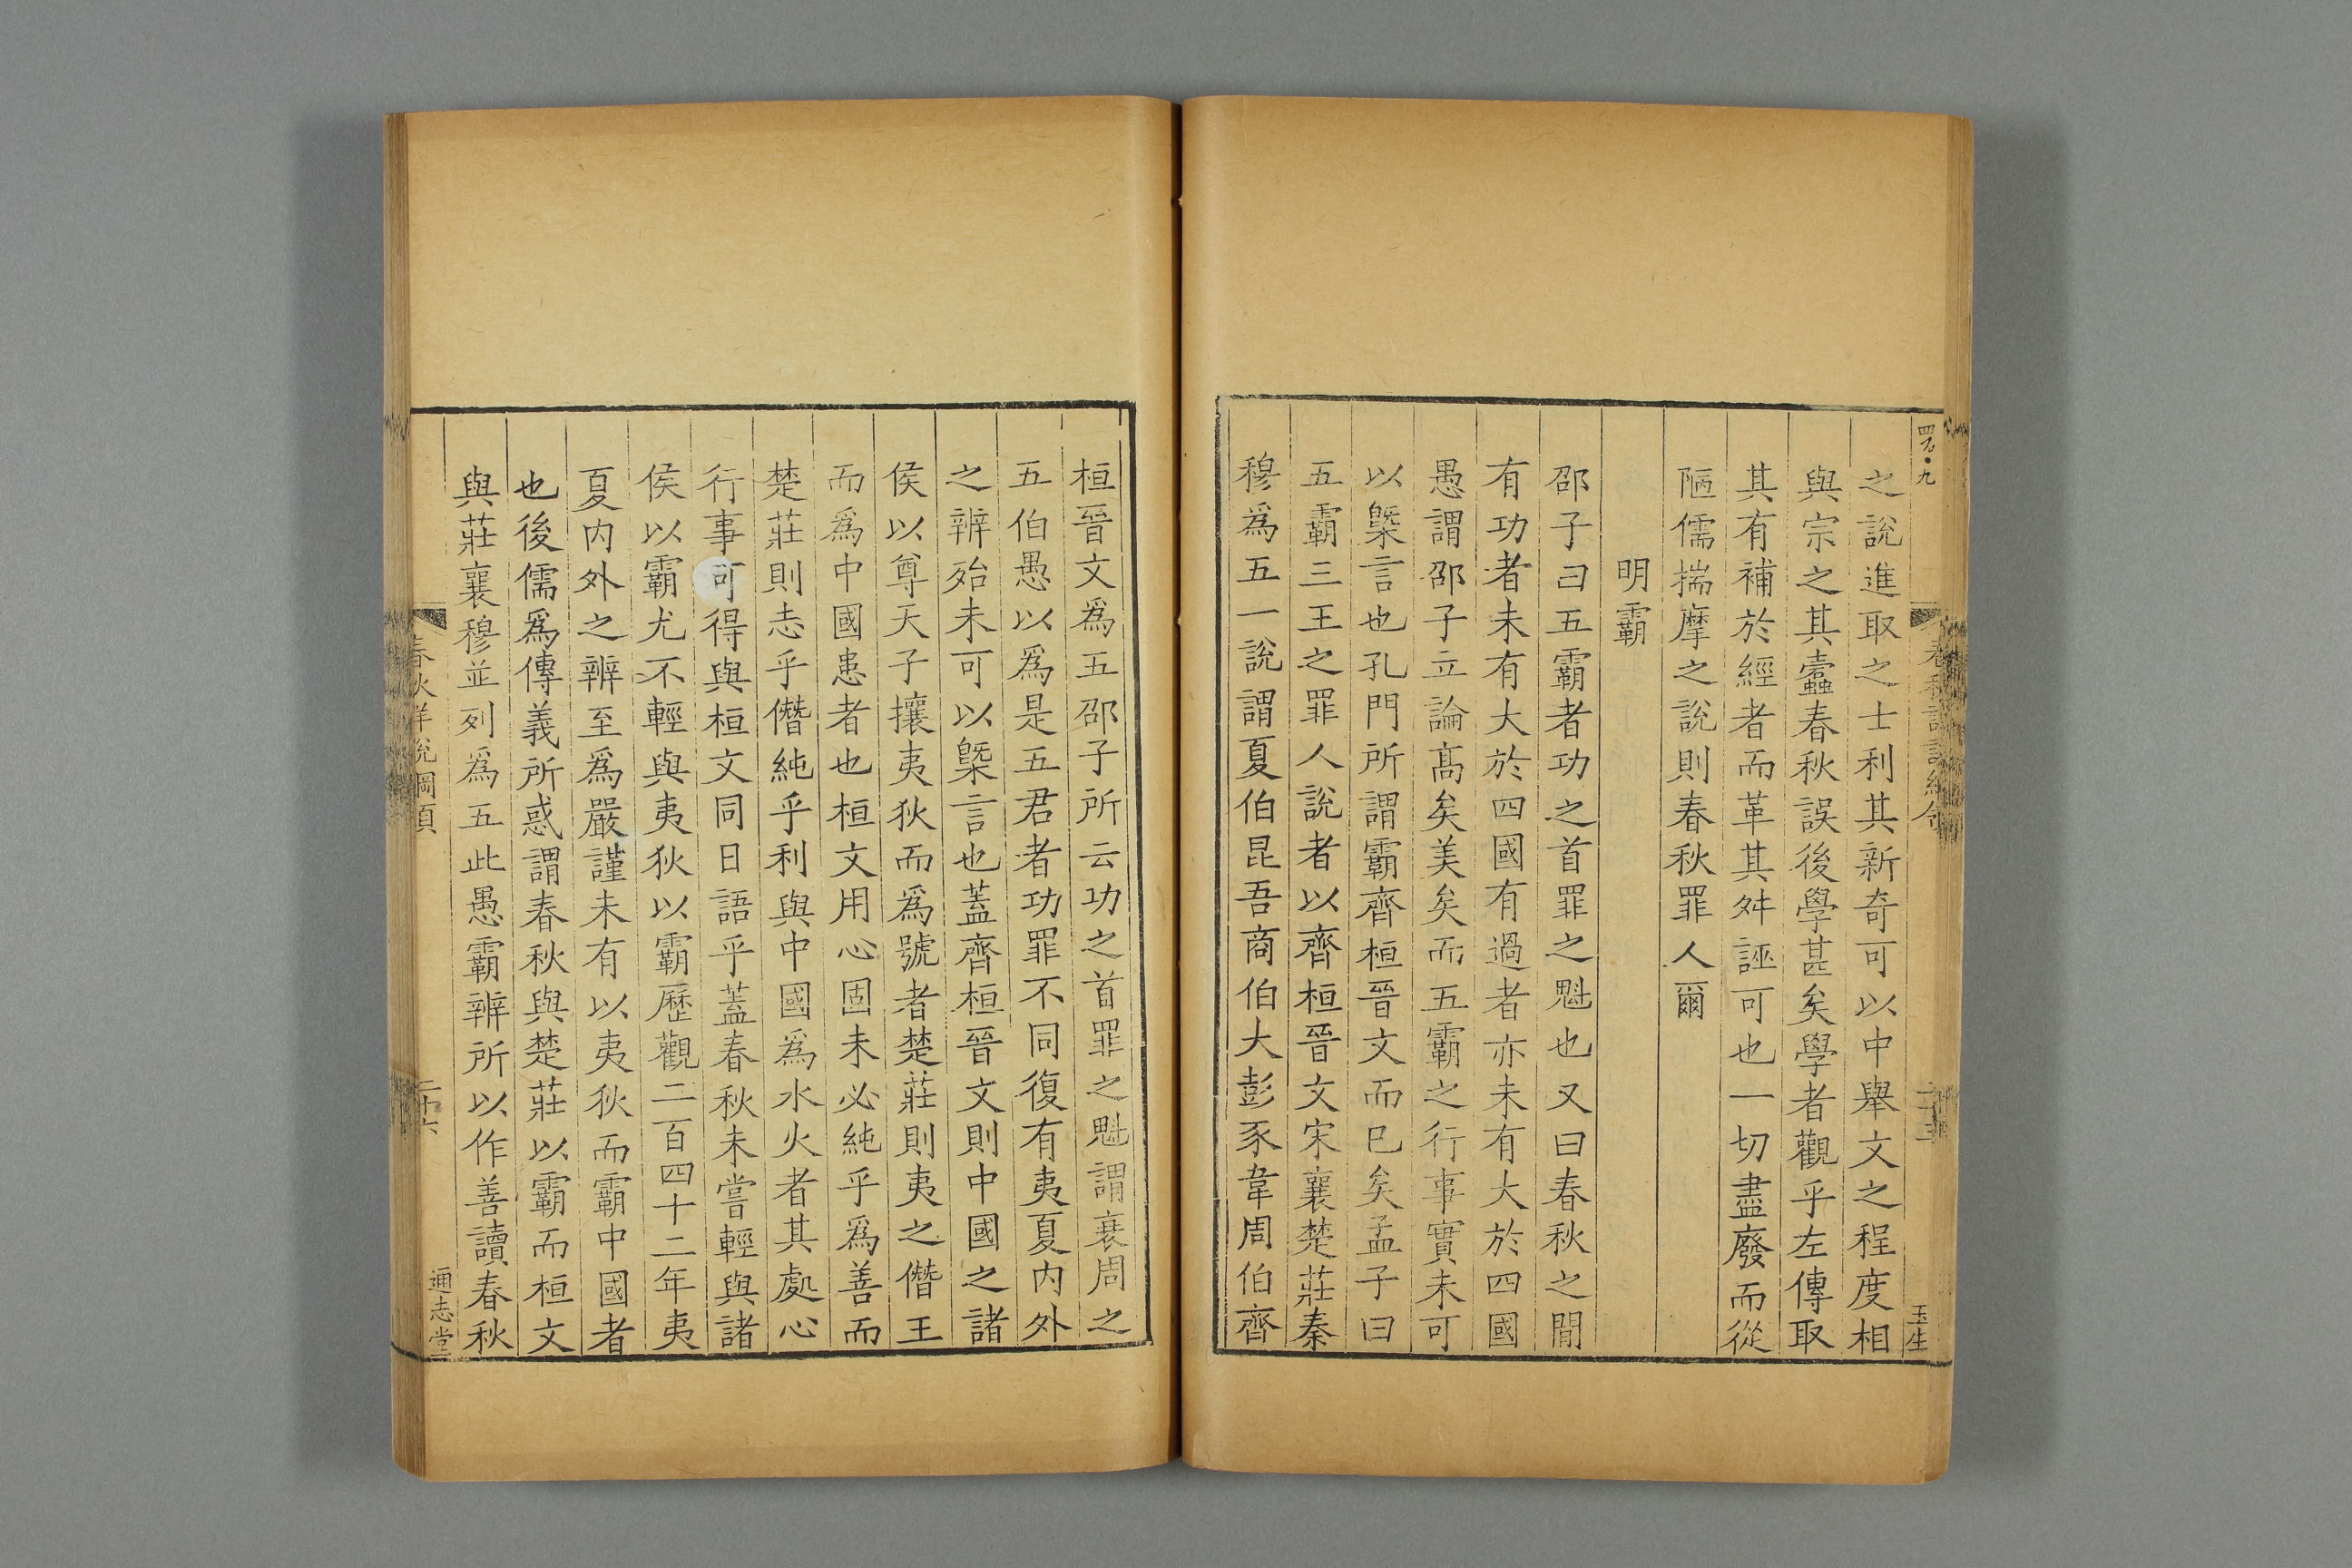 之說進取之士利其新奇可以中舉文之程度相
與宗之其蠹春秋誤後學甚矣學者觀乎左傳取
其有補於經者而革其舛誣可也一切盡廢而從
陋儒揣摩之說則春秋罪人爾
明霸
邵子曰五霸者功之首罪之魁也又曰春秋之閒
有功者未有大於四國有過者亦未有大於四國
愚謂邵子立論髙矣美矣而五霸之行事實未可
以槩言也孔門所謂霸齊桓晉文而已矣孟子曰
五霸三王之罪人說者以齊桓晉文宋襄楚莊秦
穆為五一說謂夏伯昆吾商伯大彭豕韋周伯齊
桓晉文爲五邵子所云功之首罪之魁謂衰周之
五伯愚以爲是五君者功罪不同復有夷夏内外
之辨殆未可以槩言也蓋齊桓晉文則中國之諸
侯以尊天子攘夷狄而爲號者楚莊則夷之僭王
而爲中國患者也桓文用心固未必純乎爲善而
楚莊則志乎僭純乎利與中國爲水火者其處心
行事可得與桓文同日語乎蓋春秋未嘗輕與諸
侯以霸尤不輕與夷狄以霸歷觀二百四十二年夷
夏内外之辨至爲嚴謹未有以夷狄而霸中國者
也後儒爲傳義所惑謂春秋與楚莊以霸而桓文
與莊襄穆並列爲五此愚霸辨所以作善讀春秋
春秋詳說綱領
二十六
通志堂